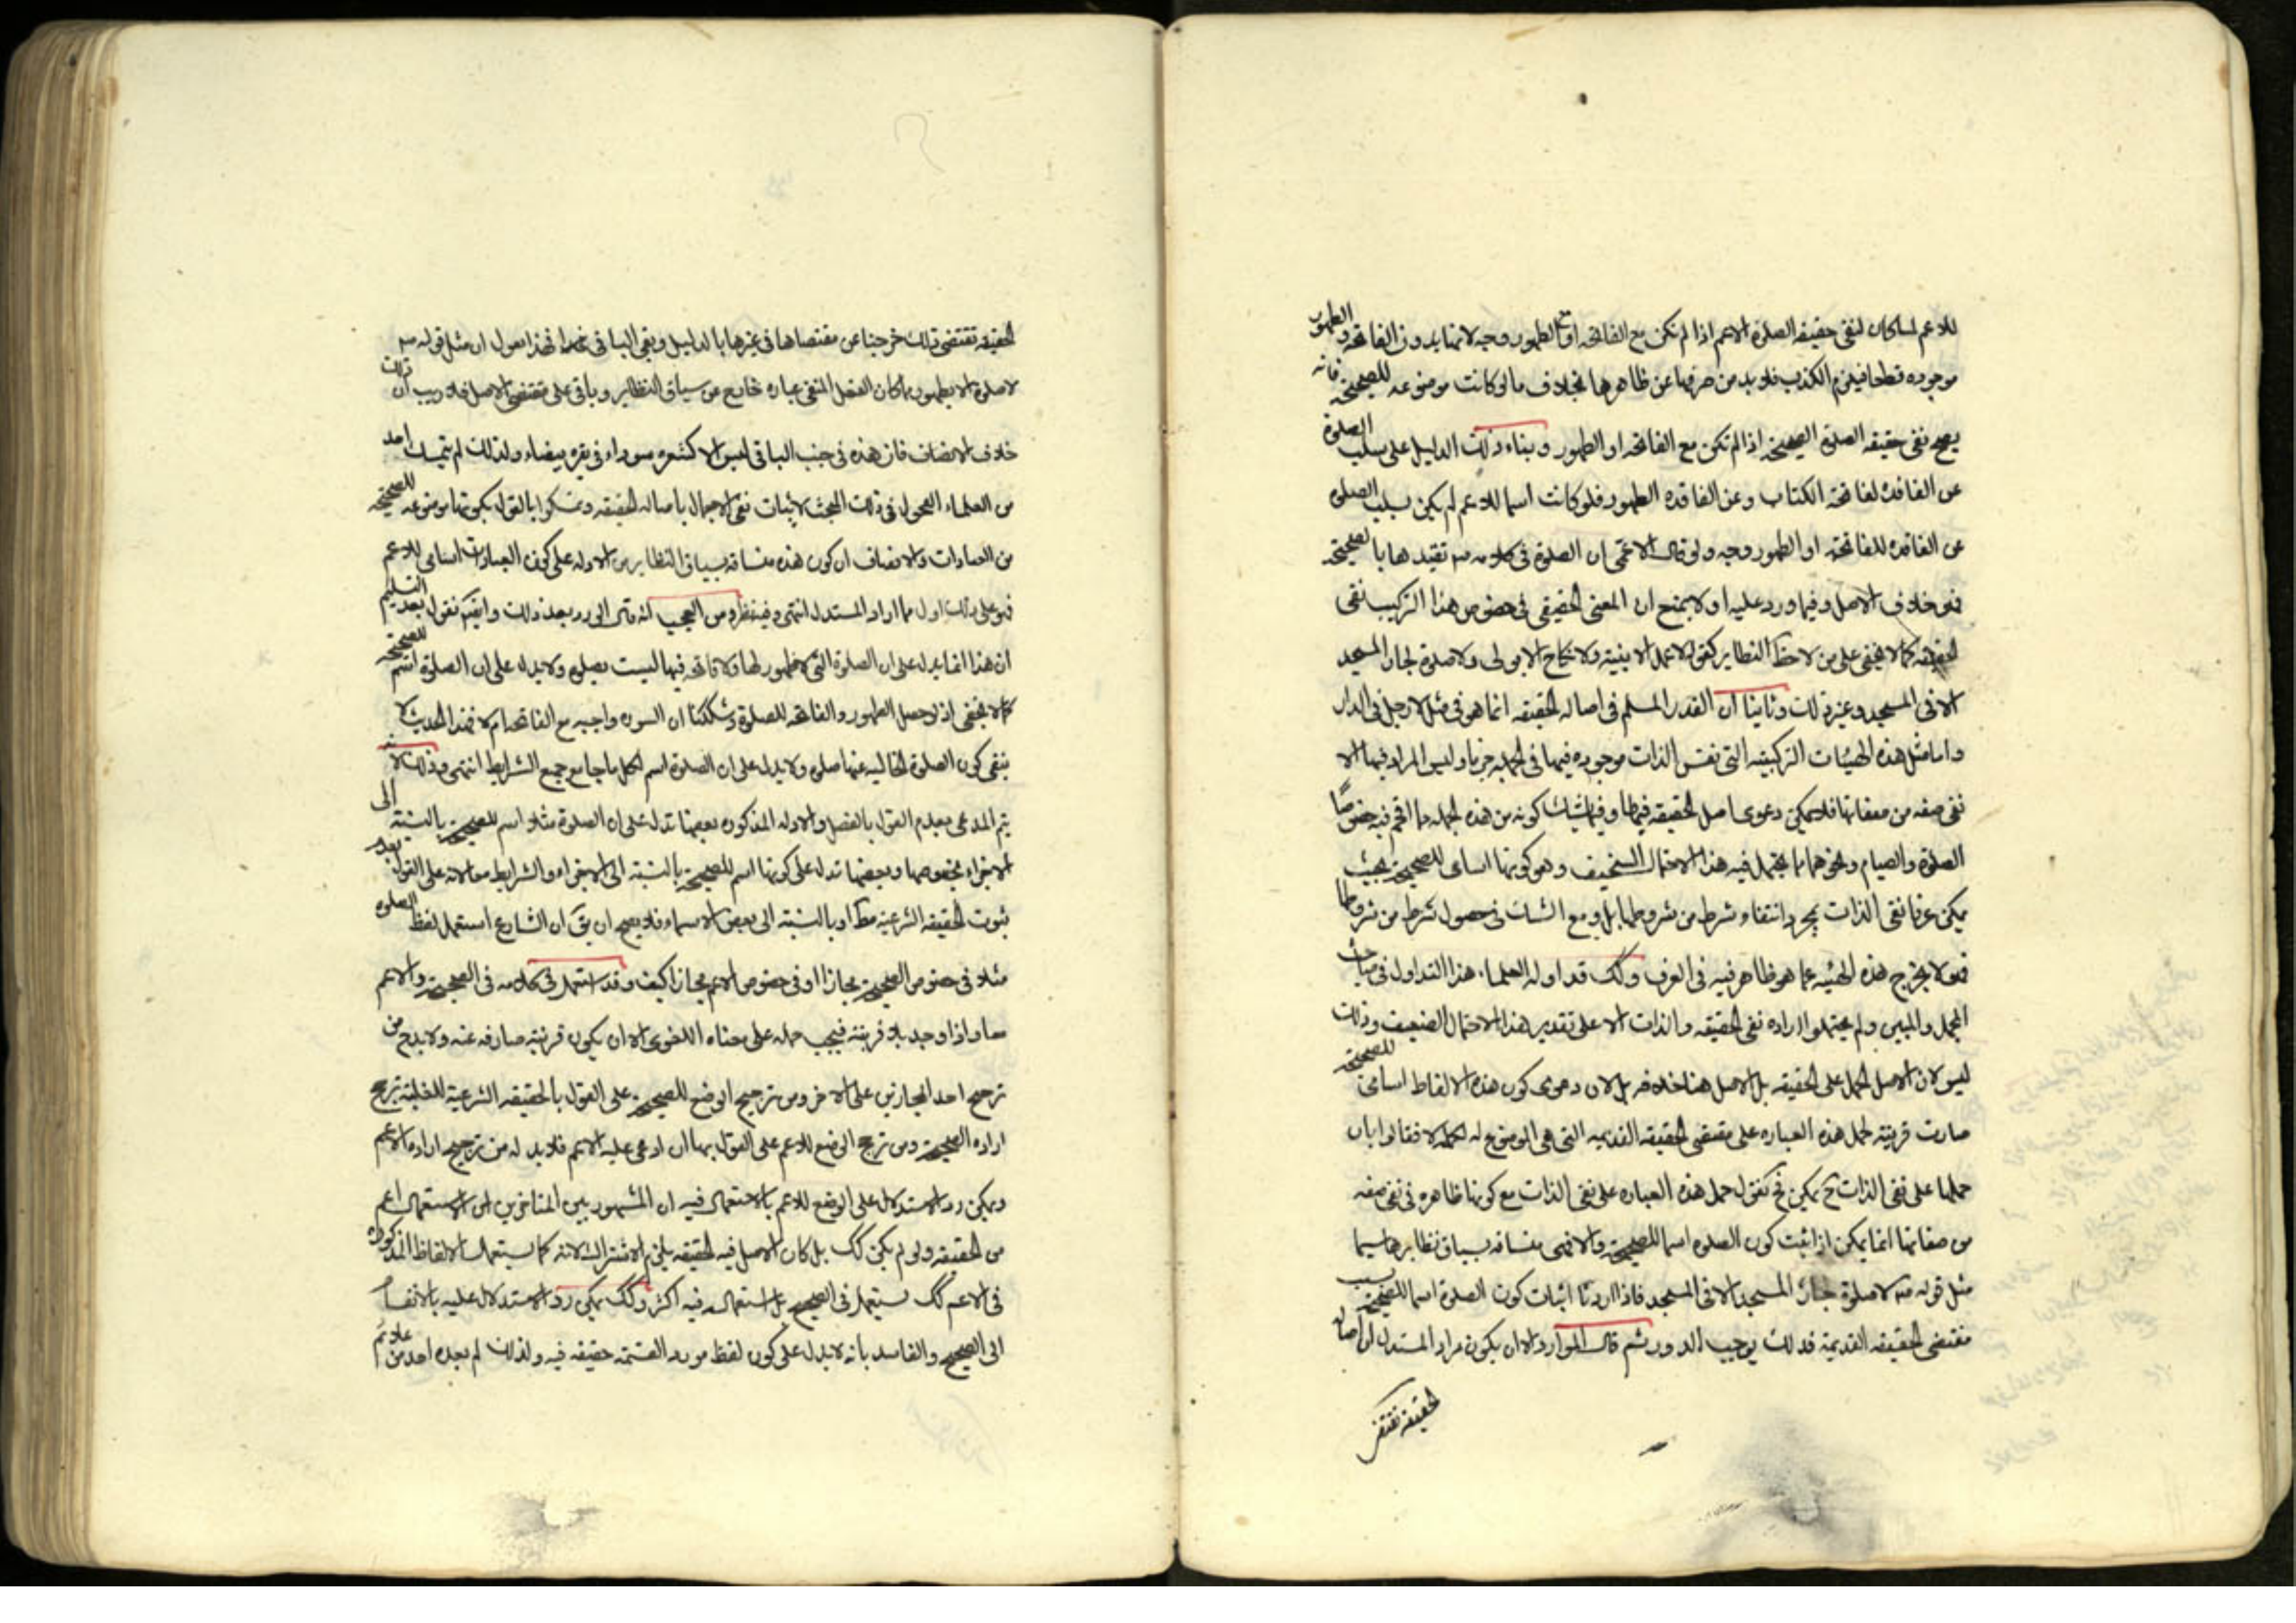 للاعم لما كان لنفي حقيقه الصلوة الاعم اذا لم تكن مع الفاتحه او الطهور وجه لانها بدون الفاتحه والطهور
موجوده قطعا فيلزم الكذب فلا بد من صرفها عن ظاهرها بخلاف ما لو كانت موضوعه للصحيحة فانه
يصح نفي حقيقه الصلوة الصحيحة اذا لم تكن مع الفاتحه او الطهور وبناء ذلك الدليل على سلب الصلوة
عن الفاقدة لفاتحة الكتاب وعن الفاقده الطهور فلو كانت اسما للاعم لم يكن لسلب الصلوة
عن الفاقده للفاتحة او الطهور وجه ولو قال الاعمى ان الصلوة في كلامه تقيدها بالصحيحة
فهو خلاف الاصل وفيما ورد عليه اولا بمنع ان المعنى الحقيقي في خصوص هذا التركيب نفي
الحقيقه كما لا يخفى على من لاحظ النظاير كقوله لا عمل الا بنية ولا نكاح الا بولى ولا صلوة لجار المسجد
الا في المسجد وغير ذلك وثانيا ان القدر المسلم في اصالة الحقيقه انما هو في مثل لا رجل في الدار
واما مثل هذه الهيئات التركيبيه التي نفس الذات موجوده فيها في الجملة جزما وليس المراد فيها الا
نفي صفه من صفاتها فلا يمكن دعوى اصل الحقيقه فيها وفيما يشك كونه من هذه الجمله مما اقحم فيه خصوصا
الصلوة والصيام ونحوهما مما يحتمل فيه هذا الاحتمال السخيف وهو كونها اسامى للصحيحة بحيث
يمكن عرفا نفي الذات بمجرد انتفاء شرط من شروطها بل ومع الشك في حصول شرط من شروطها
فهو لا يخرج هذه الهيئه عما هو ظاهر فيه في العرف وكك قد اوله العلماء هذا التداول في مباحث
المجمل والمبين ولم يحتملوا ارادة نفي الحقيقه والذات الا على تقدير هذا الاحتمال الضعيف وذلك
ليس لان الاصل الحمل على الحقيقه بل الاصل هنا خلافه بل لان دعوى كون هذه الالفاظ اسامى للصحيحة
صارت قرينة لحمل هذه العباره على مقتضى الحقيقه القديمه التي هي الموضوع له فقالوا بان
حملها على نفي الذات ح يمكن فح نقول حمل هذه العباره على نفي الذات مع كونها ظاهره في نفي صفه
من صفاتها انما يمكن اذا ثبت كون الصلوة اسما للصحيحة والا فهى منساقه بسياق نظايرها سيما
مثل قوله لا صلوة لجار المسجد الا في المسجد فاذا اردنا اثبات كون الصلوة اسما للصحيحة بسبب
مقتضى الحقيقه القديمة فذلك يوجب الدور ثم قال المورد الا ان يكون مراد المستدل ان اصالة
الحقيقة تقتض
الحقيقه تقتضى ذلك خرجنا عن مقتضاها في غيرها بالدليل وبقى الباقي فهذا نقول ان مثل قوله
لا صلوة الا بطهور مما كان الفعل المنفى عباره خارج من سياق النظاير وباقى على مقتضى الاصل فلا ريب ان ذلك
خلاف الانصاف فان هذه في جنب الباقي ليس الا كشعره سوداء في بقره بيضاء ولذلك لم يتمسك احد
من العلماء الفحول في ذلك المبحث لاثبات نفي الاجمال باصالة الحقيقه وتمسكوا بالقول بكونها موضوعه للصحيحة
من العبادات والانصاف ان كون هذه منساقه بسياق النظاير من الادله على كون العبادات اسامى للاعم
فهو على ذلك اول مما اراد المستدل انتهى وفيه نظر ومن العجب انه قال المورد بعد ذلك وايضا نقول بعد التسليم
ان هذا انما يدل على ان الصلوة التي لا طهور لها ولا فاتحه فيها ليست بصلوة ولا يدل على ان الصلوة اسم للصحيحة
كما لا يخفى اذ لو حصل الطهور والفاتحه للصلوة وشككنا ان السوره واجبه مع الفاتحه ام لا فهذا الحديث لا
ينفى كون الصلوة الخاليه عنها صلوة ولا يدل على ان الصلوة اسم لكل ما جامع جميع الشرايط انتهى وفيه ذلك لانه
يتم المدعى بعدم القول بالفصل والادله المذكوره بعضها تدل على ان الصلوة مثلا اسم للصحيحة بالنسبة الى
الاجزاء بخصوصها وبعضها تدل على كونها اسم للصحيحة بالنسبة الى الاجزاء والشرايط معا لانه على القول بعدم
ثبوت الحقيقه الشرعية مط او بالنسبة الى بعض الاسماء فلا يصح ان يق ان الشارع استعمل لفظ الصلوة
مثلا في خصوص الصحيحة مجازا او في خصوص الاعم مجازا كيف وقد استعمل في كلامه في الصحيحة والاعم
معا واذا وجد بلا قرينة فيجب حمله على معناه اللغوى الا ان يكون قرينة صارفه عنه ولا بد ح من
ترجيح احد المجازين على الاخر ومن ترجيح الوضع للصحيحة على القول بالحقيقه الشرعية للغلبة ترجيح
اراده الصحيحة ومن ترجيح الوضع للاعم على القول بها ان ادعى عليه الاعم فلا بد له من ترجيح اراده الاعم
ويمكن رد الاستدلال على الوضع للاعم بالاستعمال فيه ان المشهور بين المتاخرين ان الاستعمال اعم
من الحقيقه ولو لم يكن كك بل كان الاصل فيه الحقيقه يلزم الاشتراك لانه كما يستعمل الالفاظ المذكوره
في الاعم كك يستعمل في الصحيح بل استعماله فيه اكثر وكك يمكن رد الاستدلال عليه بالانقسام
الى الصحيح والفاسد بانه لا يدل على كون لفظ مورد القسمة حقيقه فيه ولذلك لم يعده احد من علائم